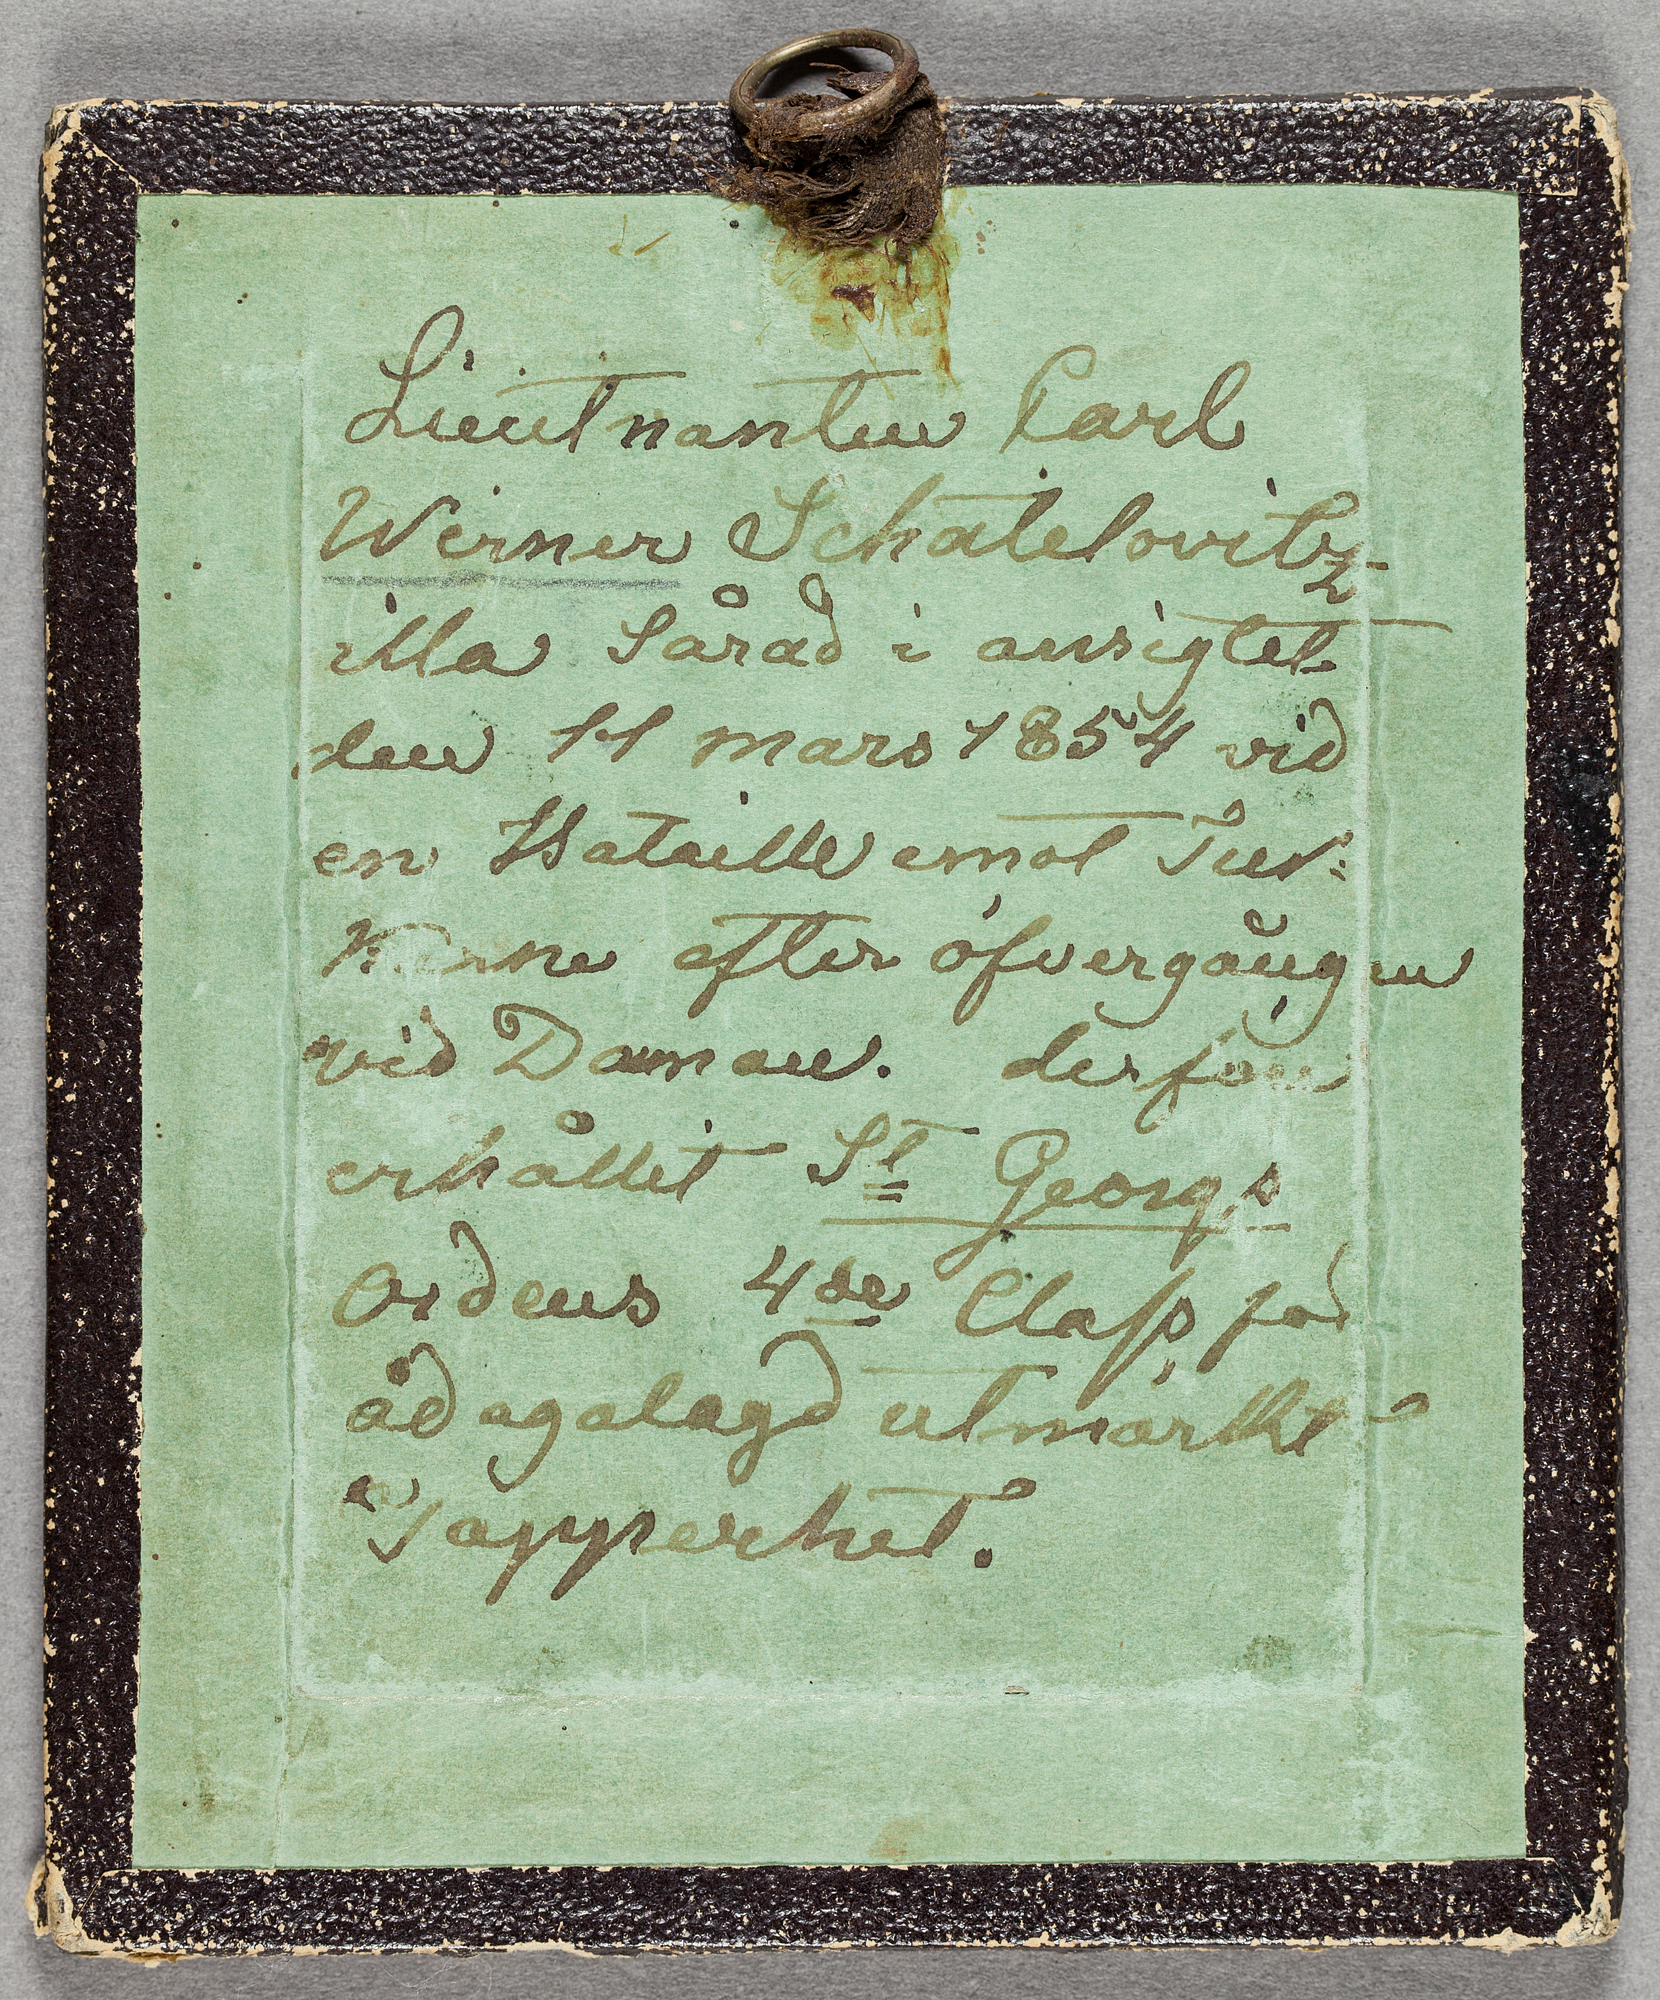 Lieutnanten Carl
Werner Schatelovitz
illa Sårad i ansigtet
den 11 mars 1854 vid
en Bataille emot Tur:
karne efter öfvergången
vid Donau. derföre
erhållit St Georgs
Ordens 4de Class för
ådagalagd utmärkt
Tapperhet.